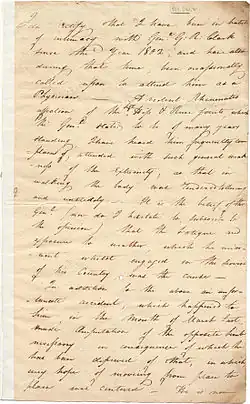 I do certify that I have been in habits
of intimacy with Genl. G. R. Clark
since the Year 1802, and have also
during that time, been occasionally
called upon to attend him as a
Physician. A violent Rheumatic
affection of the Hips & Knee joints, which
the Genl. stated to be of many years
standing I have heard him frequently com-
plain of, attended with such general weak-
ness of the extremity, as that in
walking, the body was
and unsteady. It is the belief of the
Genl. (nor do I hesitate to subscribe to
the opinion) that the fatigue and
exposure to weather which he under-
went whilst engaged in the cause
of his Country, was the cause
In addition to the above an unfor-
tunate accident, which happened to
him in the Month of March last
made Amputation of the opposite limb
necessary in consequence of which he
has been deprived of that, in which
every hope of moving from place to
place was centered. He is now